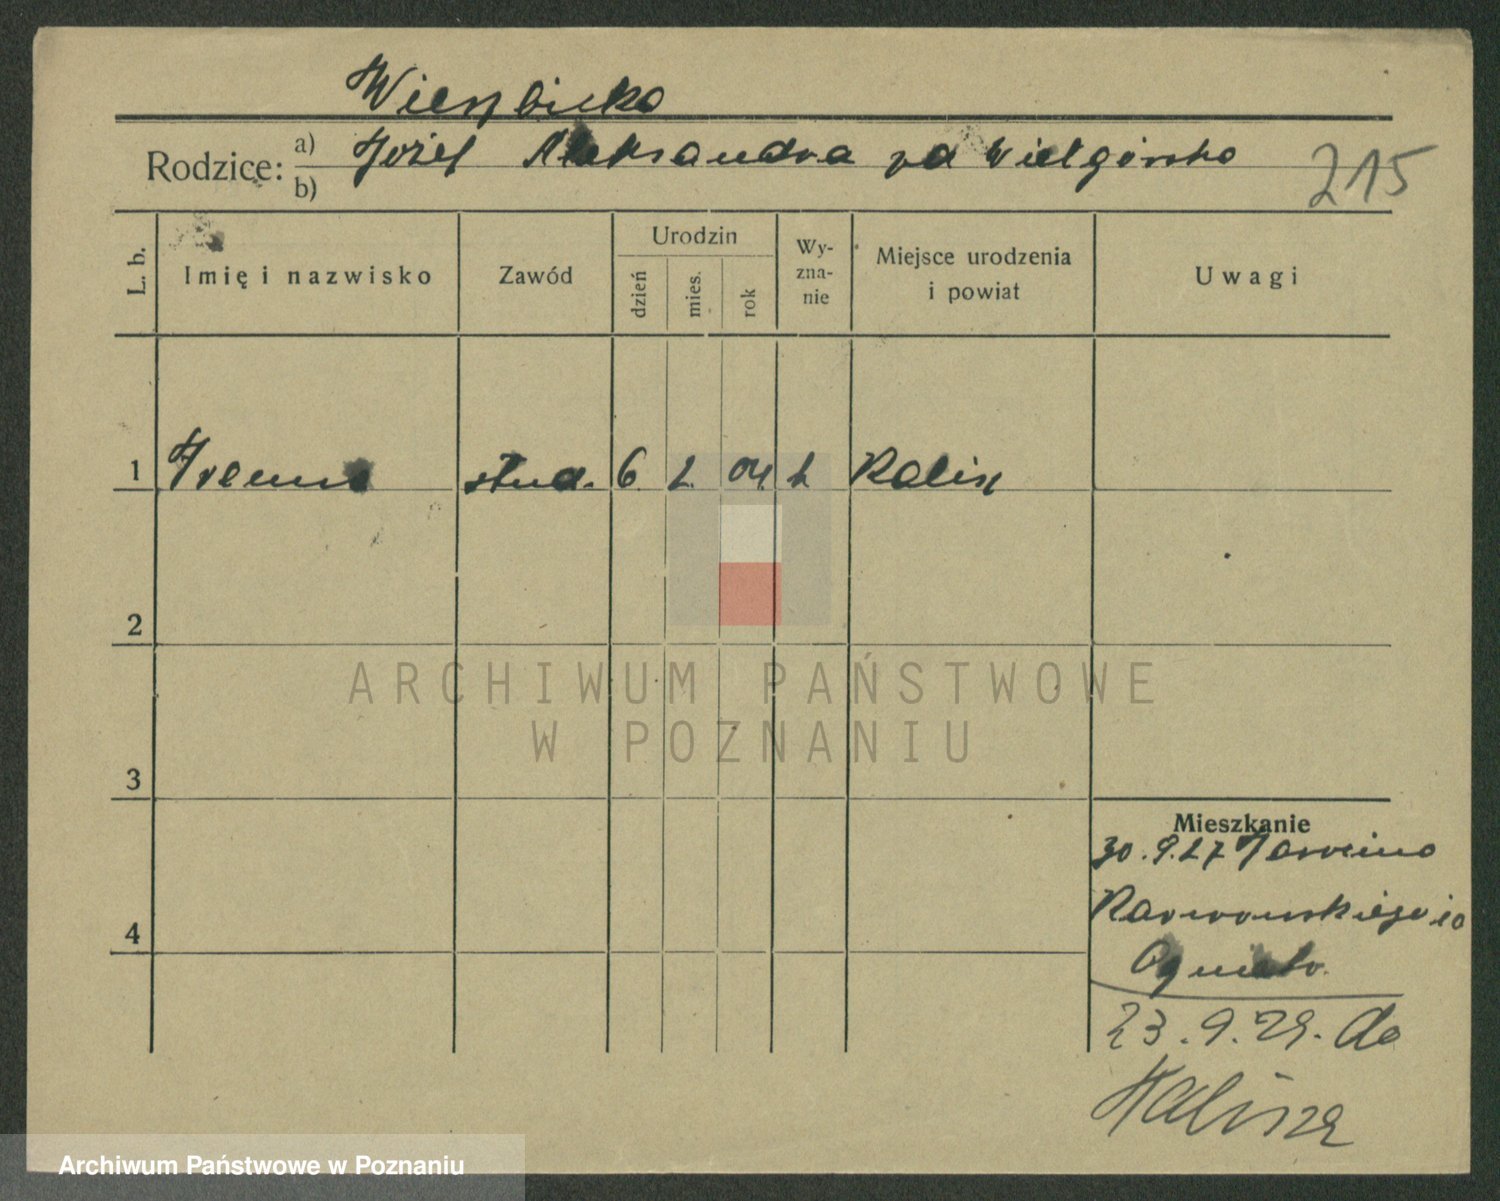 Wierzbicka
Rodzice: a) Józef Aleksandra zd Wielgórska
b)
215
L. b.
Imię i nazwisko
Zawód
Urodzin
dzień
mies.
rok
Wy-
zna-
nie
Miejsce urodzenia
i powiat
Uwagi
1 Irena stud. 6 2 04 k Kalisz
2
3
4
ARCHIWUM PAŃSTWOWE
W POZNANIU
Mieszkanie
30.9.27
10
23.9.29. do
Kalisza
Archiwum Państwowe w Poznaniu